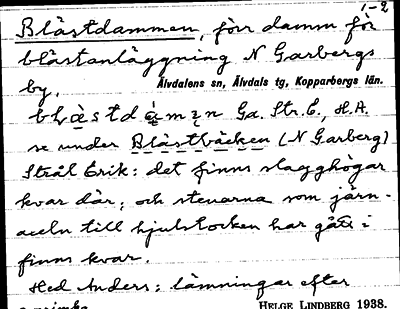 1-2
Blästdammen, förr damm för
blästanläggning N Garbergs
by.
Älvdalens sn, Älvdals tg, Kopparbergs län.
Gx. Str. E., H.A.
se under Blästbäcken (N Garberg)
Strål Erik: det finns slagghögar
kvar där, och stenarna som järn-
axeln till hjulstocken har gått i
finns kvar.
Hed Anders: lämningar efter
HELGE LINDBERG 1938.